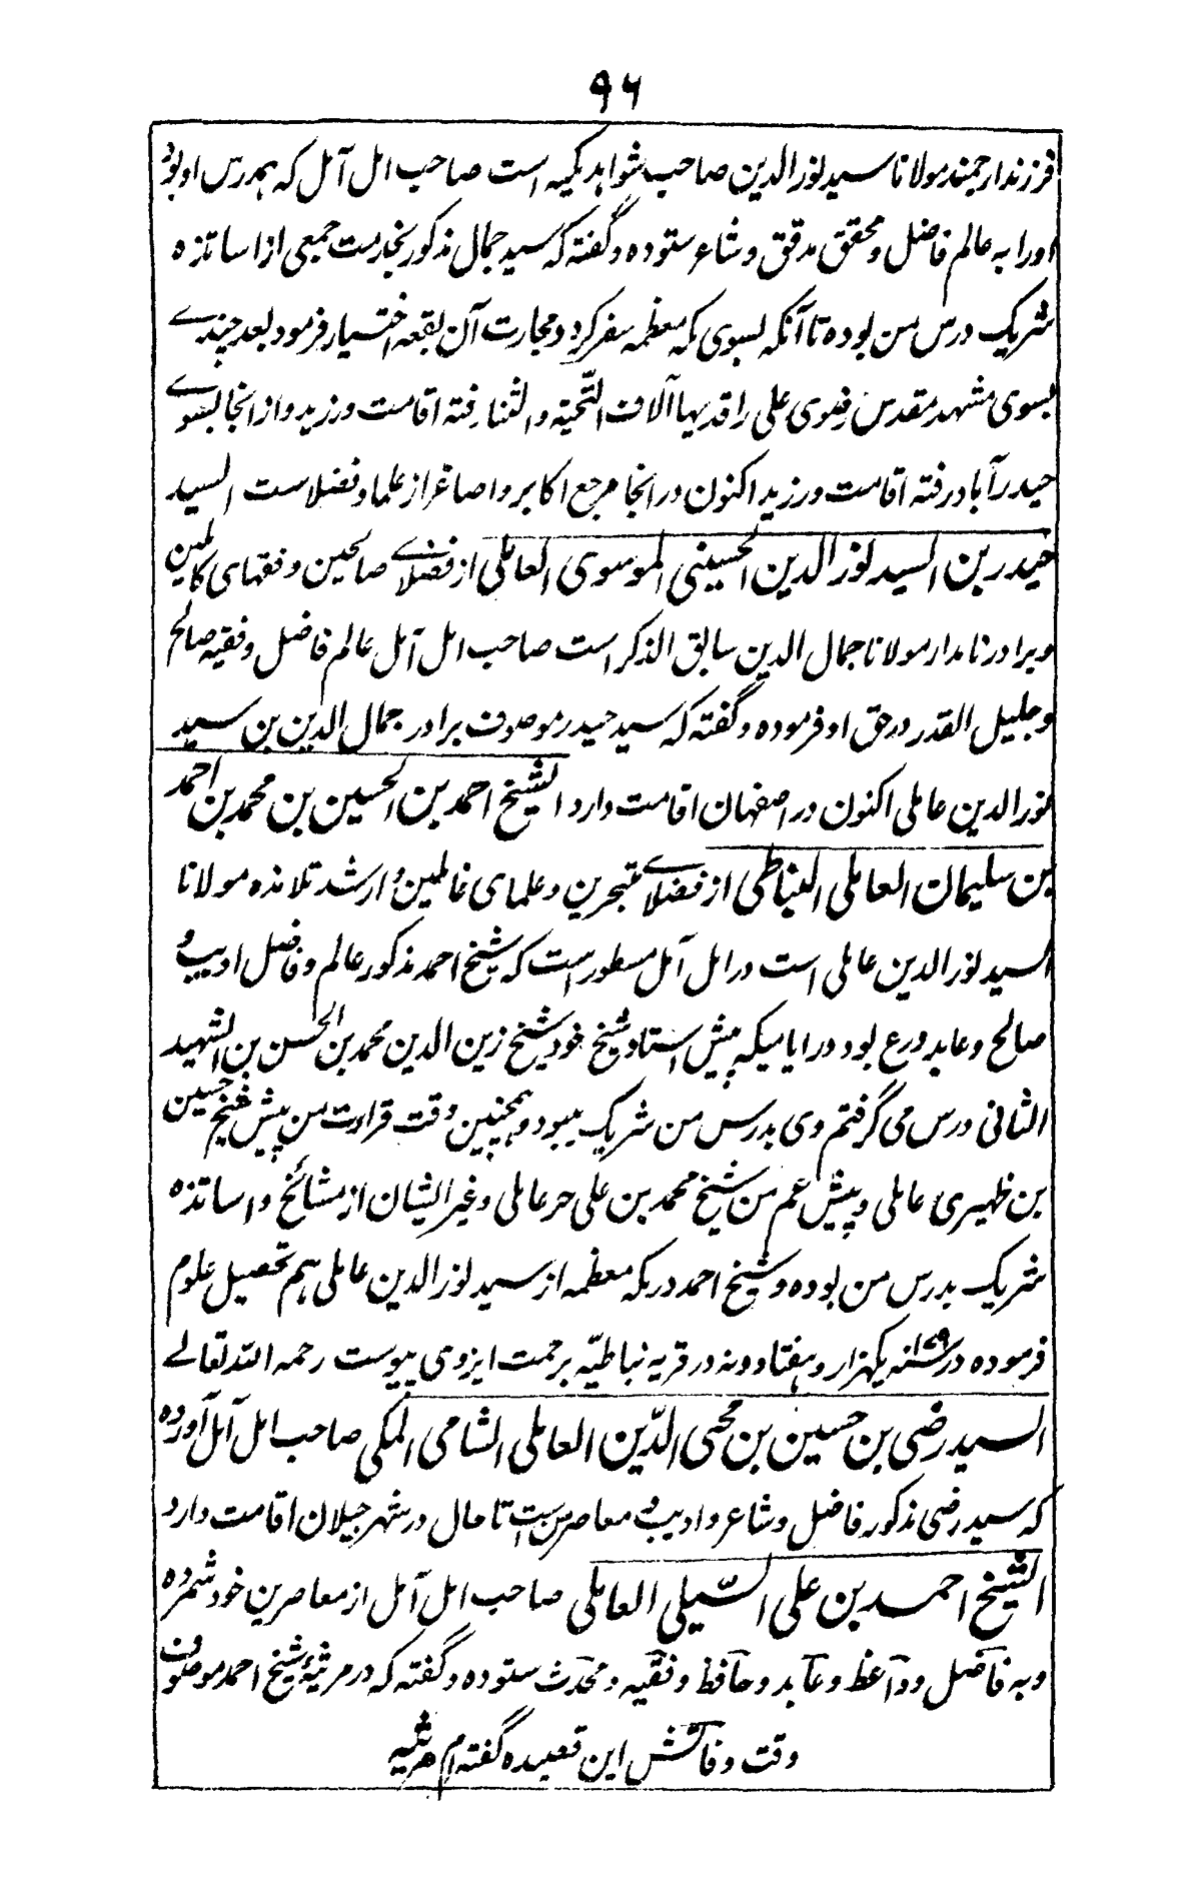 ۹۶
فرزند ارجمند مولانا سید نورالدین صاحب شواهد مکیه است صاحب امل آمل که همدرس او بود
او را به عالم فاضل و محقق مدقق و شاعر ستوده و گفته که سید جمال مذکور بخدمت جمعی از اساتذه
شریک درس من بوده تا آنکه بسوی مکه معظمه سفر کرد و مجارت آن بقعه اختیار فرمود بعد چندے
بسوی مشهد مقدس رضوی علی راقدیها آلاف التّحیة والثنا رفته اقامت ورزید و از انجا بسوے
حیدرآباد رفته اقامت ورزید اکنون در انجا مرجع اکابر و اصاغر از علما و فضلاست السید
حیدر بن السید نورالدین الحسینی الموسوی العاملی از فضلاے صالحین و فقهای کاملین
و برادر نامدار مولانا جمال الدین سابق الذکر است صاحب امل آمل عالم فاضل و فقیه صالح
و جلیل القدر در حق او فرموده و گفته که سید حیدر موصوف برادر جمال الدین بن سید
نورالدین عاملی اکنون در اصفهان اقامت دارد الشیخ احمد بن الحسین بن محمد بن احمد
بن سلیمان العاملی النباطی از فضلاے متبحرین و علمای عاملین و ارشد تلامذه مولانا
السید نورالدین عاملی است در امل آمل مسطور است که شیخ احمد مذکور عالم و فاضل ادیب و
صالح و عابد ورع بود در ایامیکه پیش استاد شیخ خود شیخ زین الدین محمد بن الحسن بن الشهید
الثانی درس می گرفتم وی بدرس من شریک میبود و همچنین وقت قراءت من پیش شیخ حسین
بن ظهیری عاملی و پیش عم من شیخ محمد بن علی حر عاملی و غیر ایشان از مشائخ و اساتذه
شریک بدرس من بوده و شیخ احمد در مکه معظمه از سید نورالدین عاملی هم تحصیل علوم
فرموده در سنه ۱۰۷۹ یکهزار و هفتاد و نه در قریه نباطیّه برحمت ایزوی پیوست رحمه الله تعالے
السید رضی بن حسین بن محی الدّین العاملی الشامی المکی صاحب امل آمل آورده
که سید رضی مذکور فاضل و شاعر و ادیب و معاصر من ست تا حال در شهر جیلان اقامت دارد
الشیخ احمد بن علی السّیلی العاملی صاحب امل آمل از معاصرین خود شمرده
و به فاضل و واعظ و عابد و حافظ و فقیه و محدث ستوده و گفته که در مرثیۀ شیخ احمد موصوف
وقت وفاتش این قصیده گفته ام مرثیه